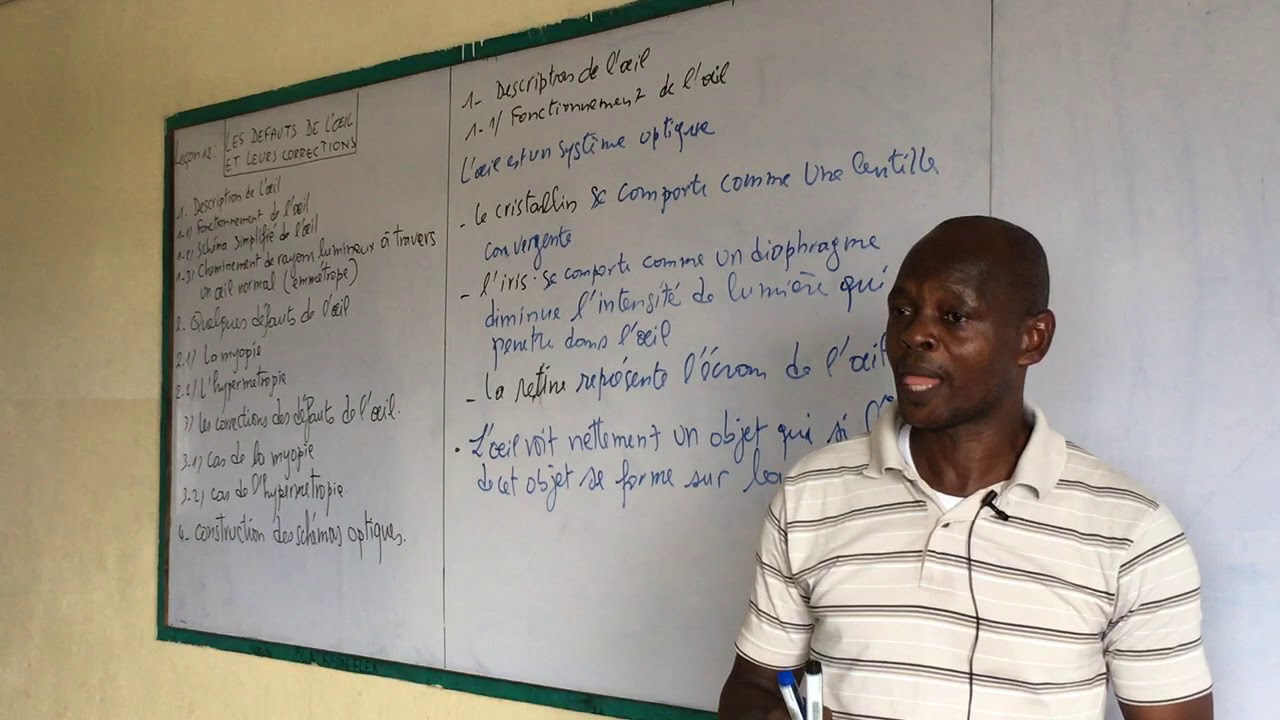 Leçon 12: LES DEFAUTS DE L'ŒIL
ET LEURS CORRECTIONS
1- Description de l'œil
1-1) Fonctionnement de l'œil
1-2) Schéma simplifié de l'œil
1-3) Cheminement de rayons lumineux à travers
un œil normal (emmétrope)
2- Quelques défauts de l'œil
2.1) La myopie
2.2) L'hypermetropie
3) Les corrections des défauts de l'œil.
3.1) Cas de la myopie
3-2) Cas de l'hypermetropie
4- Construction des schémas optiques.
1- Description de l'œil
1-1) Fonctionnement de l'œil
L'œil est un système optique
- Le cristallin se comporte comme une lentille
convergente
- l'iris se comporte comme un diaphragme
diminue l'intensité de lumière qui
penetre dans l'œil
- La retine représente l'écran de l'œil
• L'œil voit nettement un objet qui si
de cet objet se forme sur la